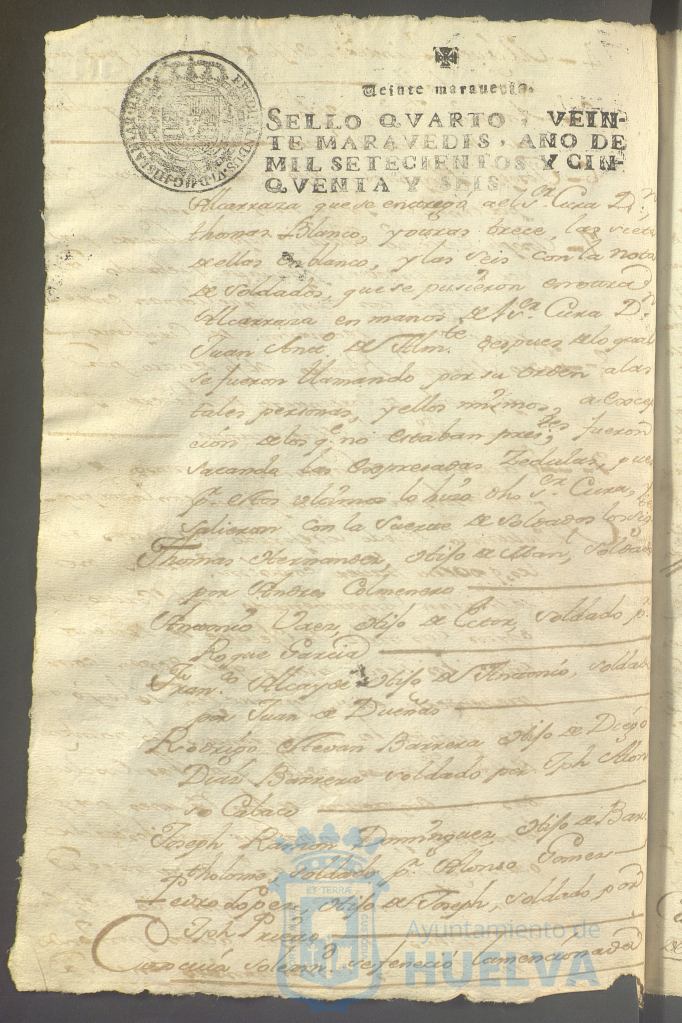 Veinte maravedis.
SELLO QVARTO, VEIN-
TE MARAVEDIS, AÑO DE
MIL SETECIENTOS Y CIN-
QVENTA Y SEIS
Alcarraza que se entregò a el Sr. Cura Dn.
thomas Blanco, y otras trece, las siete
de ellas en blanco, y las seis con la nota
de soldados, que se pusieron en otra
Alcarraza en manos de el Sr. Cura Dn.
Juan Anto. de despues de lo qual
se fueron llamando por su orden a las
tales personas, y ellos mismos, a excep
ción de los qe. no estaban pres.tes fueron
sacando las expresadas Zedulas, que
pr. estos ultimos lo hizo dho Sr. Cura, y
salieron con la suerte de Soldados los
Thomas Hernandez, Hijo de Soldado
por Andres Colmenero
Antonio Hijo de soldado pr.
Roque Garcia
Franco. Alcayde Hijo de Antonio, soldado
por Juan de Dueñas
Rodrigo Estevan Barrera Hijo de Diego
Diaz Barrera soldado por Jph Alon
so
Joseph Ramon Dominguez Hijo de Bar
tholome, soldado pr. Alonso Gomez
Pedro Lopez, Hijo de Joseph, soldado por
Jph
Con cuia solemnd. se fenecio la mencionada
Ayuntamiento de
HUELVA